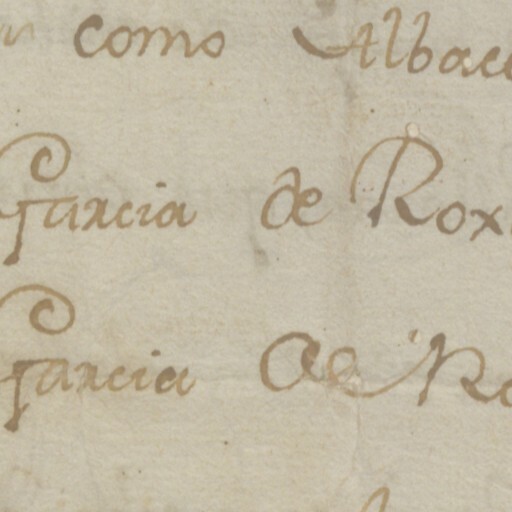 como Albace
Garcia de Rox
Garcia de Ro